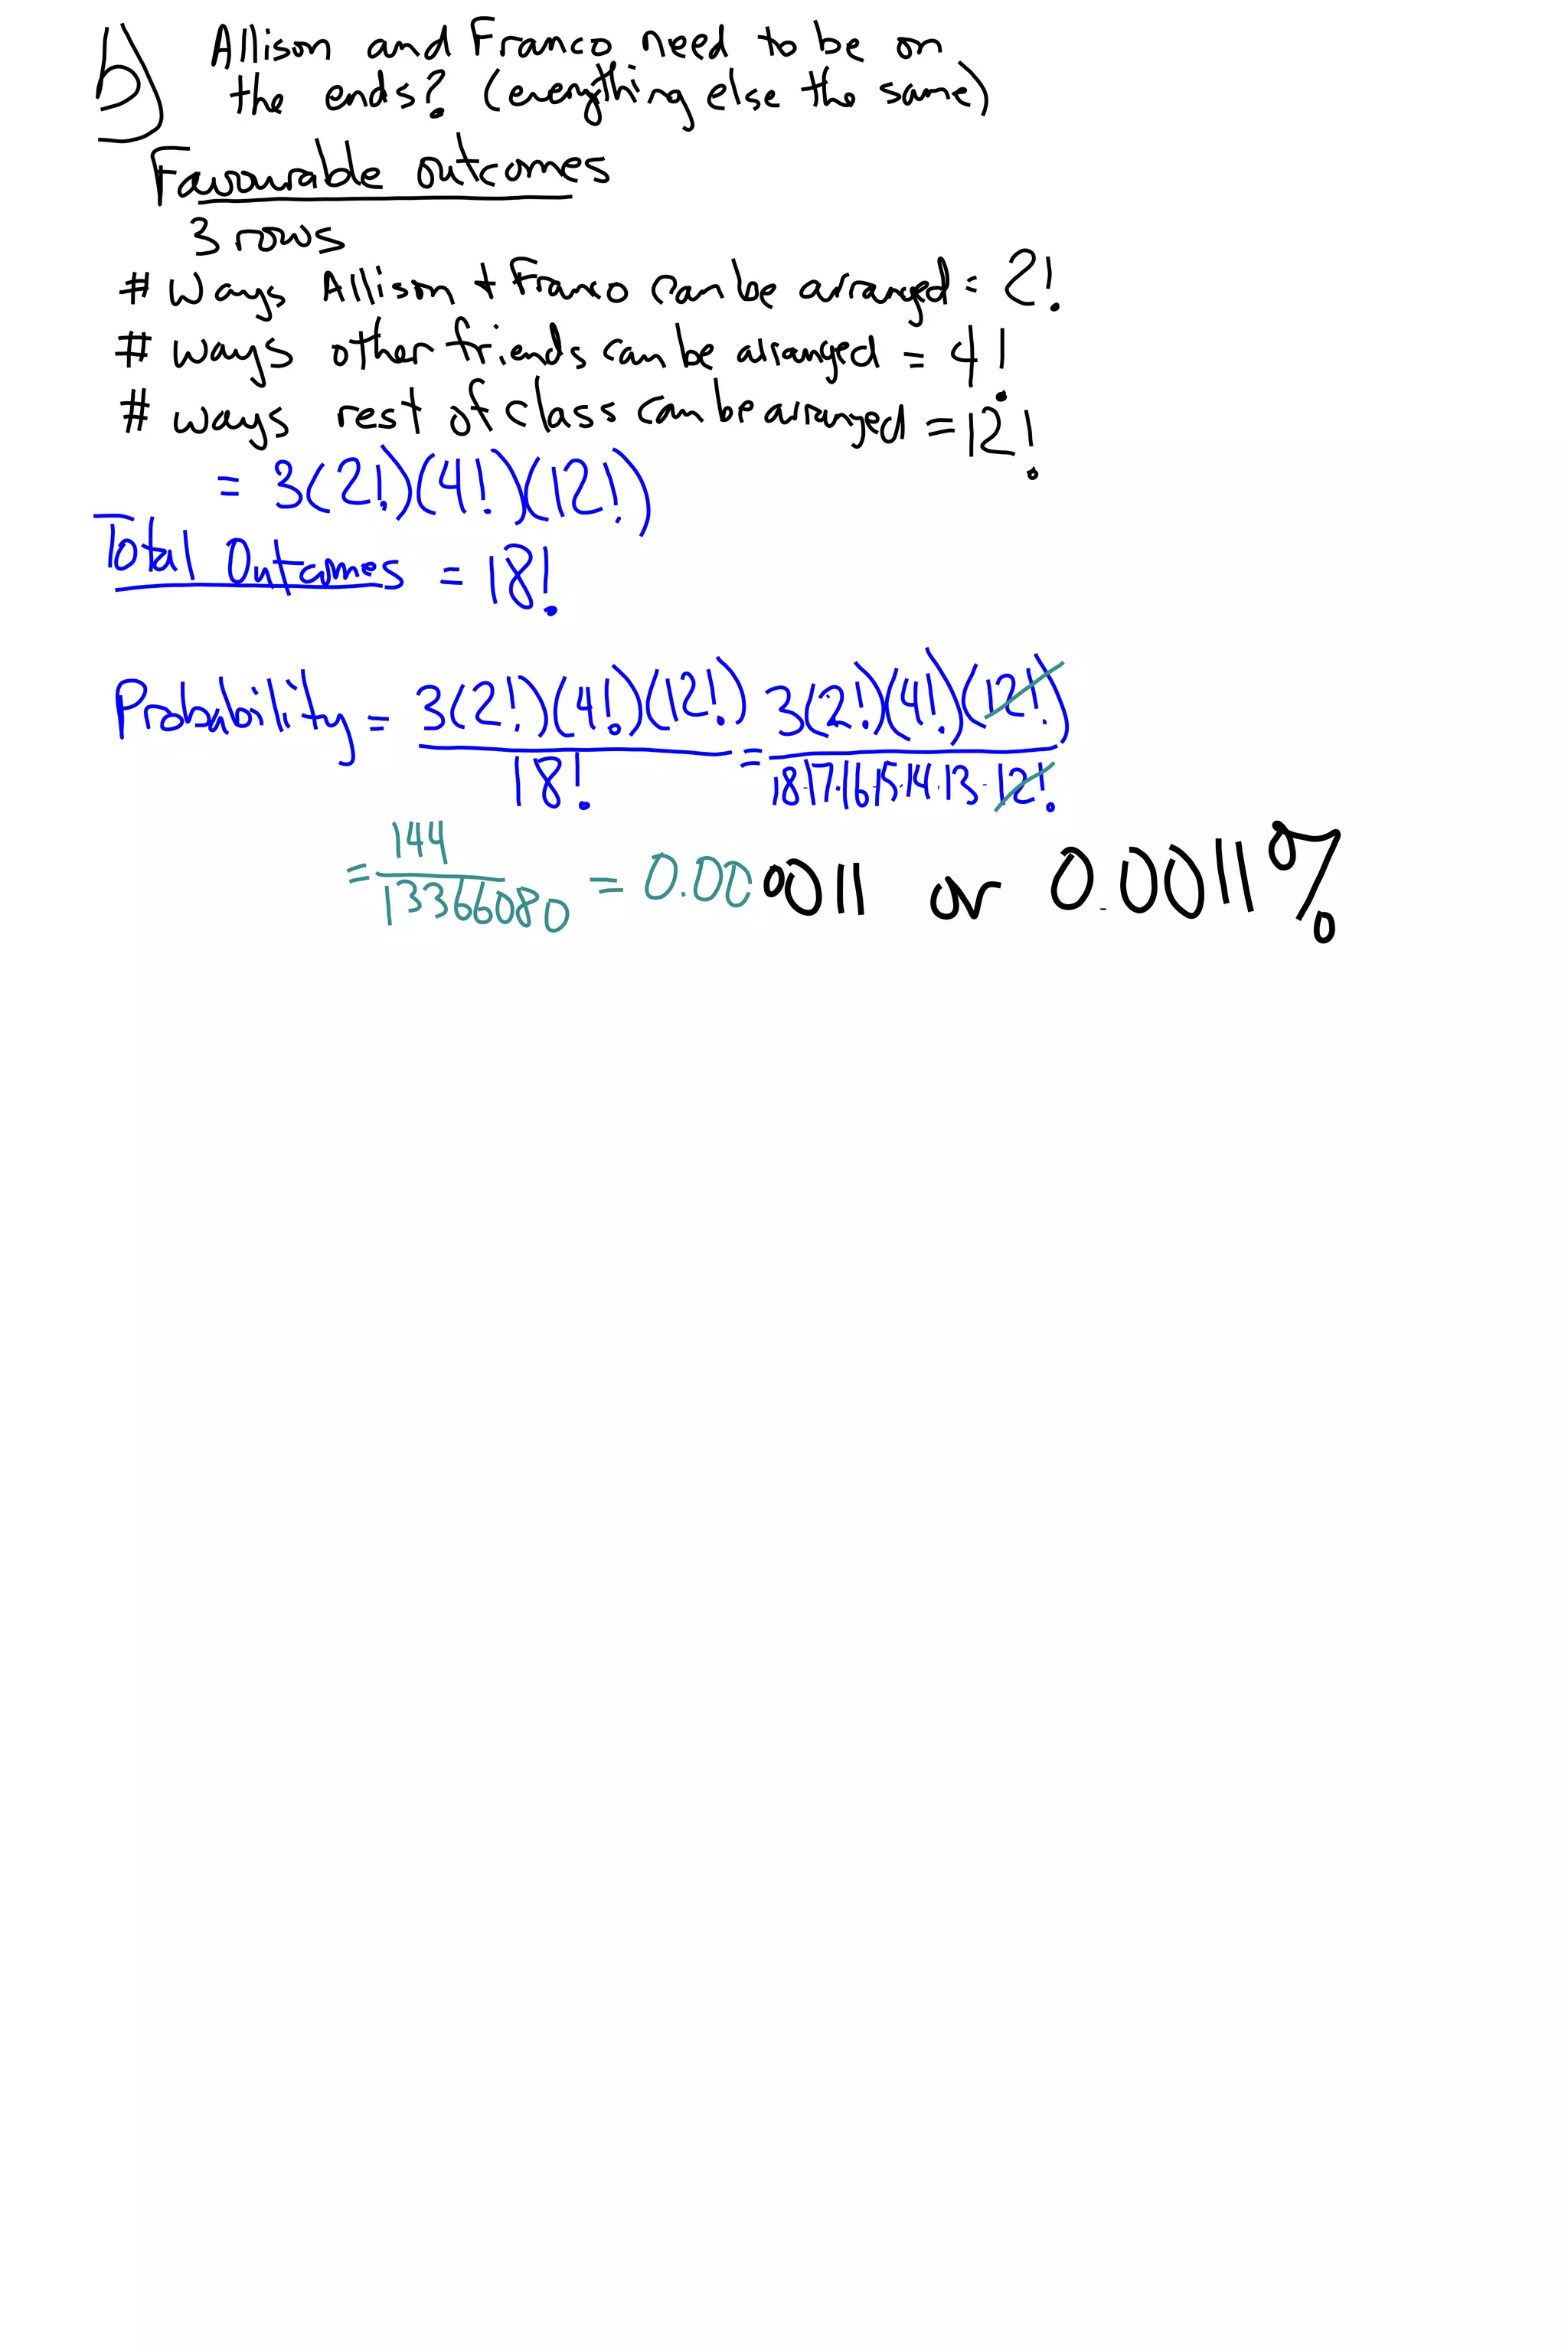 b) Allison and Franco need to be on
the ends? (everything else the same)
Favourable outcomes
3 rows
# ways Allison + Franco can be arranged = 2!
# ways other friends can be arranged = 4!
# ways rest of class can be arranged = 12!
= 3(2!)(4!)(12!)
Total Outcomes = 18!
Probability = 3(2!)(4!)(12!) / 18! = 3(2!)(4!)(12!) / 18·17·16·15·14·13·12!
= 144 / 13366080 = 0.000011 or 0.0011%